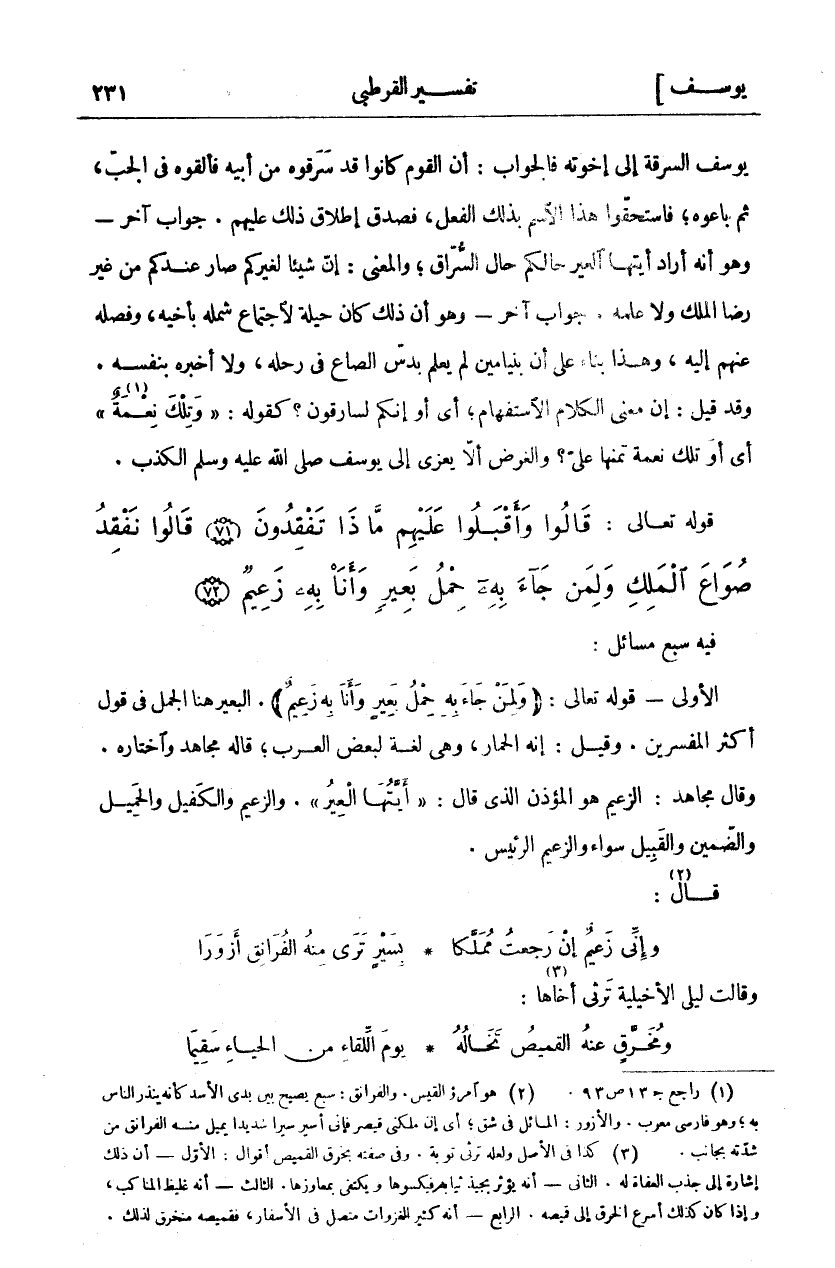 يوسف ] تفسير القرطبى ٢٣١
يوسف السرقة إلى إخوته فالجواب : أن القوم كانوا قد سَرَقوه من أبيه فألقوه فى الجبّ ،
ثم باعوه ؛ فاستحقّوا هذا الاسم بذلك الفعل ، فصدق إطلاق ذلك عليهم . جواب آخر —
وهو أنه أراد أيتها العير حالكم حال السُّراق ؛ والمعنى : إنّ شيئا لغيركم صار عندكم من غير
رضا الملك ولا علمه . جواب آخر — وهو أن ذلك كان حيلة لاجتماع شمله بأخيه ، وفصله
عنهم إليه ، وهذا بناء على أن بنيامين لم يعلم بدسّ الصاع فى رحله ، ولا أخبره بنفسه .
وقد قيل : إن معنى الكلام الاستفهام ؛ أى أو إنكم لسارقون ؟ كقوله : « وَتِلْكَ نِعْمَةٌ (١) »
أى أو تلك نعمة تمنها علىّ ؟ والغرض ألّا يعزى إلى يوسف صلى الله عليه وسلم الكذب .
قوله تعالى : قَالُوا وَأَقْبَلُوا عَلَيْهِم مَّا ذَا تَفْقِدُونَ (٧١) قَالُوا نَفْقِدُ
صُوَاعَ ٱلْمَلِكِ وَلِمَن جَآءَ بِهِۦ حِمْلُ بَعِيرٍ وَأَنَا۠ بِهِۦ زَعِيمٌ (٧٢)
فيه سبع مسائل :
الأولى — قوله تعالى : ﴿ وَلِمَنْ جَاءَ بِهِ حِمْلُ بَعِيرٍ وَأَنَا بِهِ زَعِيمٌ ﴾ . البعير هنا الجمل فى قول
أكثر المفسرين . وقيل : إنه الحمار ، وهى لغة لبعض العرب ؛ قاله مجاهد واختاره .
وقال مجاهد : الزعيم هو المؤذن الذى قال : « أَيَّتُهَا الْعِيرُ » . والزعيم والكفيل والحَمِيل
والضّمين والقَبِيل سواء والزعيم الرئيس .
قال (٢) :
وإنِّى زَعيمٌ إنْ رَجعتُ مُمَلَّكا * بسَيْرٍ تَرَى مِنهُ الفُرَانِق أَزوَرَا
وقالت ليلى الأخيلية تَرثى أخاها (٣) :
ومُخَرَّقٍ عنهُ القميصُ تَخَالُهُ * يومَ اللِّقاءِ من الحياءِ سَقِيمَا
(١) راجع جـ ١٣ ص ٩٣ . (٢) هو امرؤ القيس . والفرانق : سبع يصيح بين يدى الأسد كأنه ينذر الناس
به ؛ وهو فارسى معرب . والأزور : المائل فى شق ؛ أى إن ملكنى قيصر فإنى أسير سيرا شديدا يميل منه الفرانق من
شدّته بجانب . (٣) كذا فى الأصل ولعله ترثى توبة . وفى صفته بخرق القميص أقوال : الأوّل — أن ذلك
إشارة إلى جذب العفاة له . الثانى — أنه يؤثر بجيد ثيابه فيكسوها ويكتفى بمعاوزها . الثالث — أنه غليظ المناكب ،
وإذا كان كذلك أسرع الخرق إلى قميصه . الرابع — أنه كثير الغزوات متصل فى الأسفار ، فقميصه منخرق لذلك .